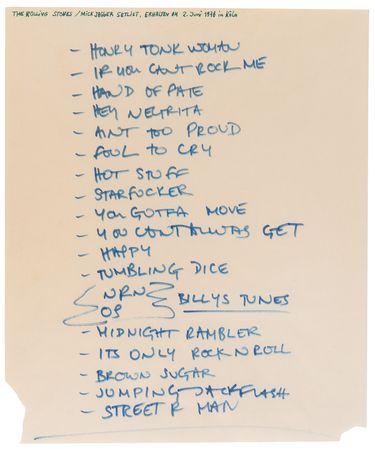 THE ROLLING STONES / MICK JAGGER SETLIST, ERHALTEN AM 2. Juni 1976 in Köln
- HONKY TONK WOMAN
- IF YOU CANT ROCK ME
- HAND OF FATE
- HEY NEGRITA
- AINT TOO PROUD
- FOOL TO CRY
- HOT STUFF
- STARFUCKER
- YOU GOTTA MOVE
- YOU CANT ALWAS GET
- HAPPY
- TUMBLING DICE
NRN
OS
BILLYS TUNES
- MIDNIGHT RAMBLER
- ITS ONLY ROCK N ROLL
- BROWN SUGAR
- JUMPING JACKFLASH
- STREET F MAN